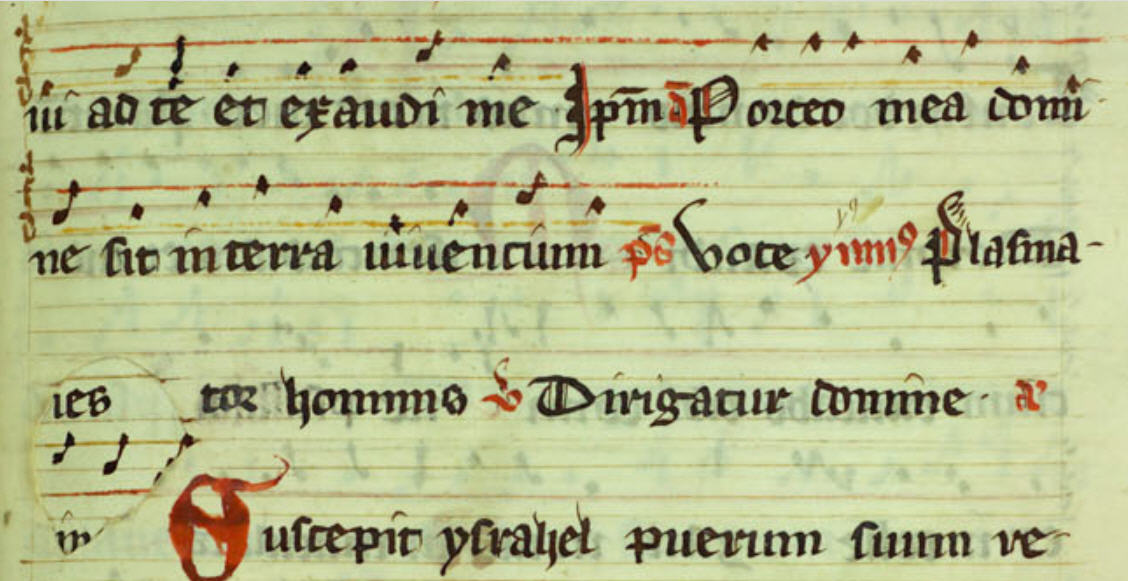 ui ad te et exaudi me Ipm̄ a̅ Porcio mea domi
ne sit in terra uiuencium p̄s Voce ymn⁹ Plasma-
ies tor hominis ꝟ Dirigatur domine. a̅
in Suscepit ysrahel puerum suum re-